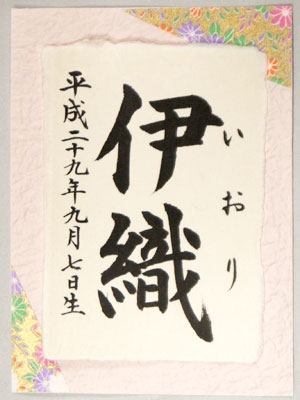 伊織
いおり
平成二十九年九月七日生